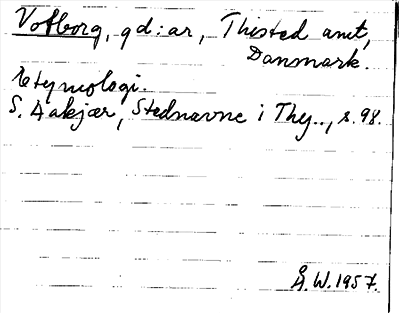 Votborg, gd:ar, Thisted amt,
Danmark.
Etymologi.
S. Aakjær, Stednavne i Thy.., s. 98.
Å.W. 1957.